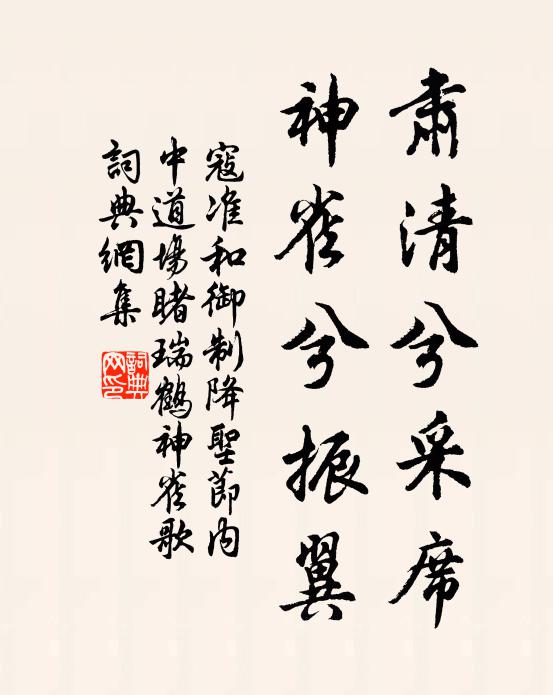 肅清兮采席
神雀兮振翼
寇准和御制降聖節內
中道場睹瑞鶴神雀歌
詞典網集
詞典
网印